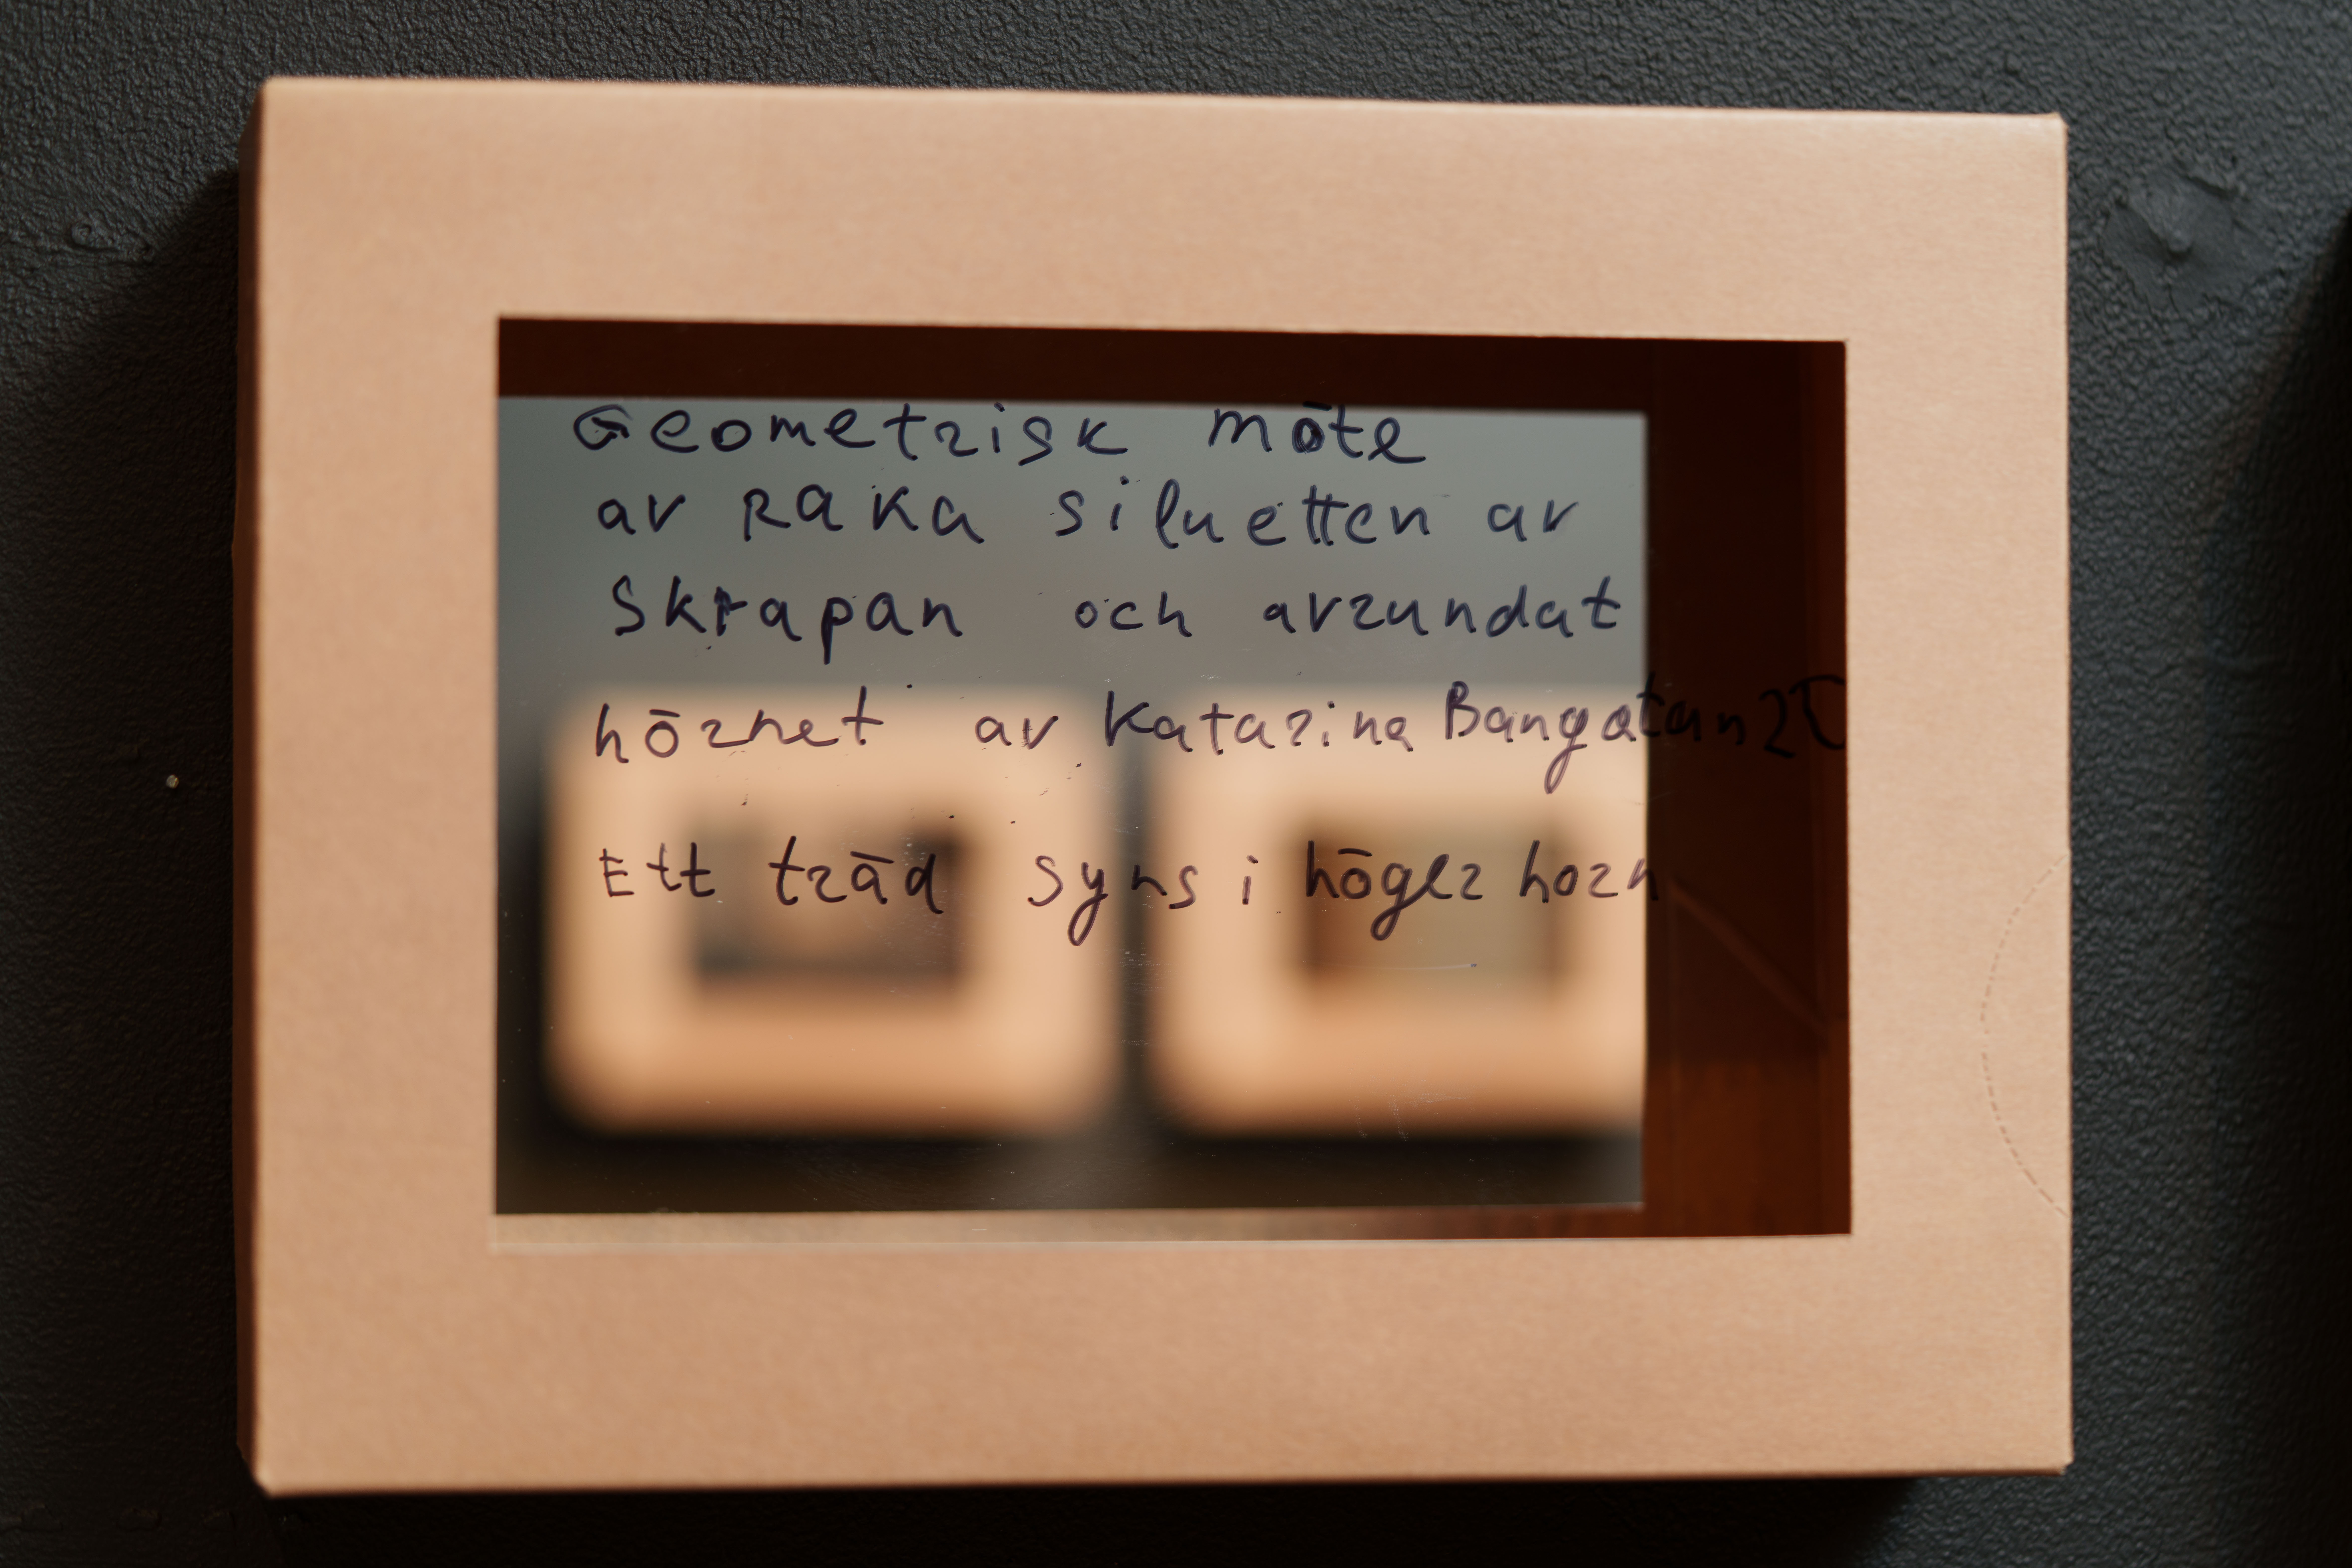 Geometrisk möte
av RAKA siluetten av
Skrapan och avrundat
hörnet av Katarina Bangatan
Ett träd syns i höger horn